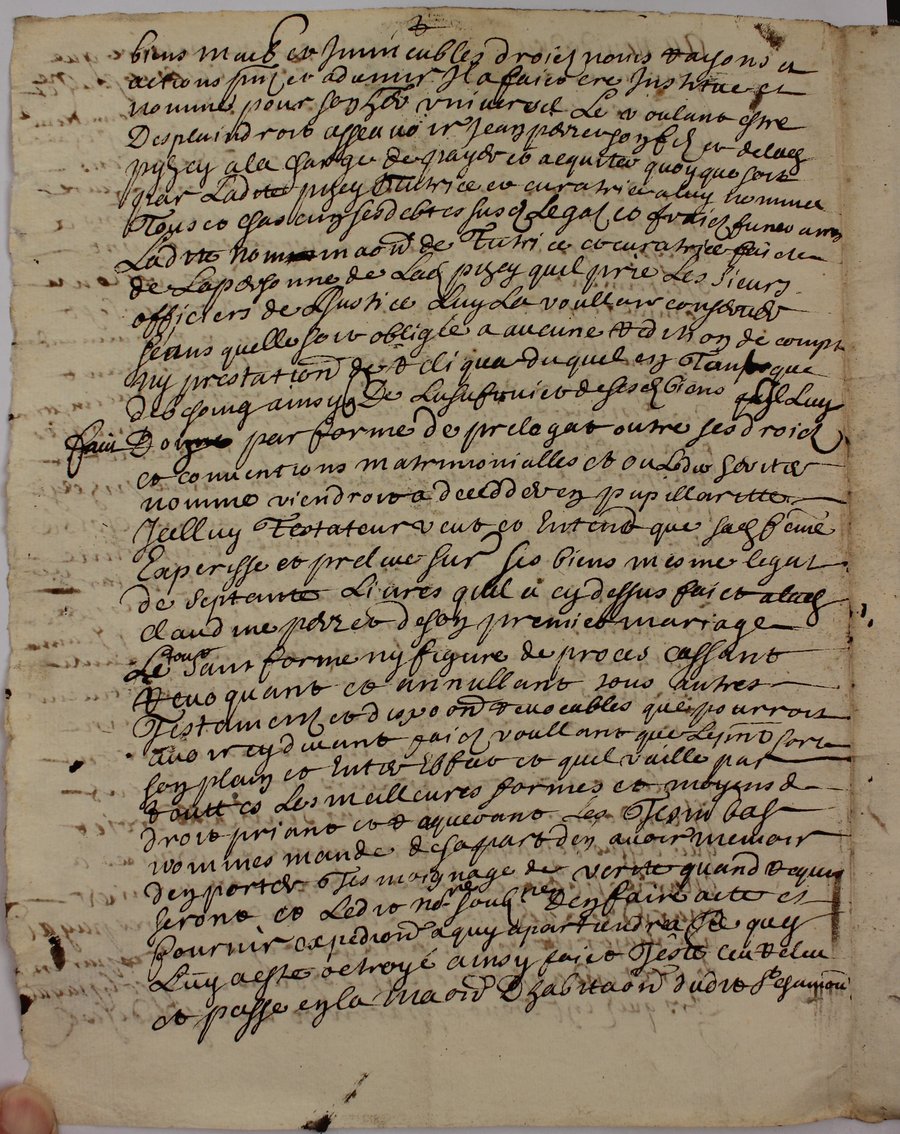 biens meub et Immeubles droictz noms raisons et
actions pntz et advenir Il a faict cree Institue et
nomme pour son her universel Le voulant estre
de plain droict assavoir Jean perret son filz et de lad
pizey a la charge de payer et acquiter quoy que soit
par Ladite pizey tutrice et curatrice a luy nommee
Tous et chascung ses debtes susd Legatz et fraictz funeraires
Ladite nominaon de Tutrice et curatrice faicte
de La personne de Lad pizey quil prie Les Sieurs
officiers de Justice Luy La voulloir conferer
sans quelle soit obligee a aucune reddition de compte
ny prestation de reliqua duquel en tant que
de besoing ainsy De Lusufruict de sesd biens quil Luy
faict Don par forme de prelegat outre ses droictz
et conventions matrimonialles et ou Ledit heritier
nomme viendroit a deceder en pupillarite
Icelluy Testateur veut et Entend que sad femme
Experisse et preleve sur ses biens mesme legat
de septante Livres quil a cy dessus faict a lad
claudine perret de son premier mariage
Le tout sans forme ny figure de proces cassant
revoquant et annullant tous autres
Testamentz et dispoons revocables que pourroit
avoir cy devant faictz voullant que Le pnt sorte
son plain et Entier Effect et quil vaille par
touttes Les meilleures formes et moyens de
droit priant et requerant Les Tesmo bas
nommes mande de sa part den avoir memoir
den porter Tesmoignage de verite quand requis
seront et Ledit nore soubne den faire acte et
fournir expedion a quy apartiendra Ce que
Luy a este octroye ainsy faict Teste Leu releu
et passe en la maon Dhabitaon dudit St chamond